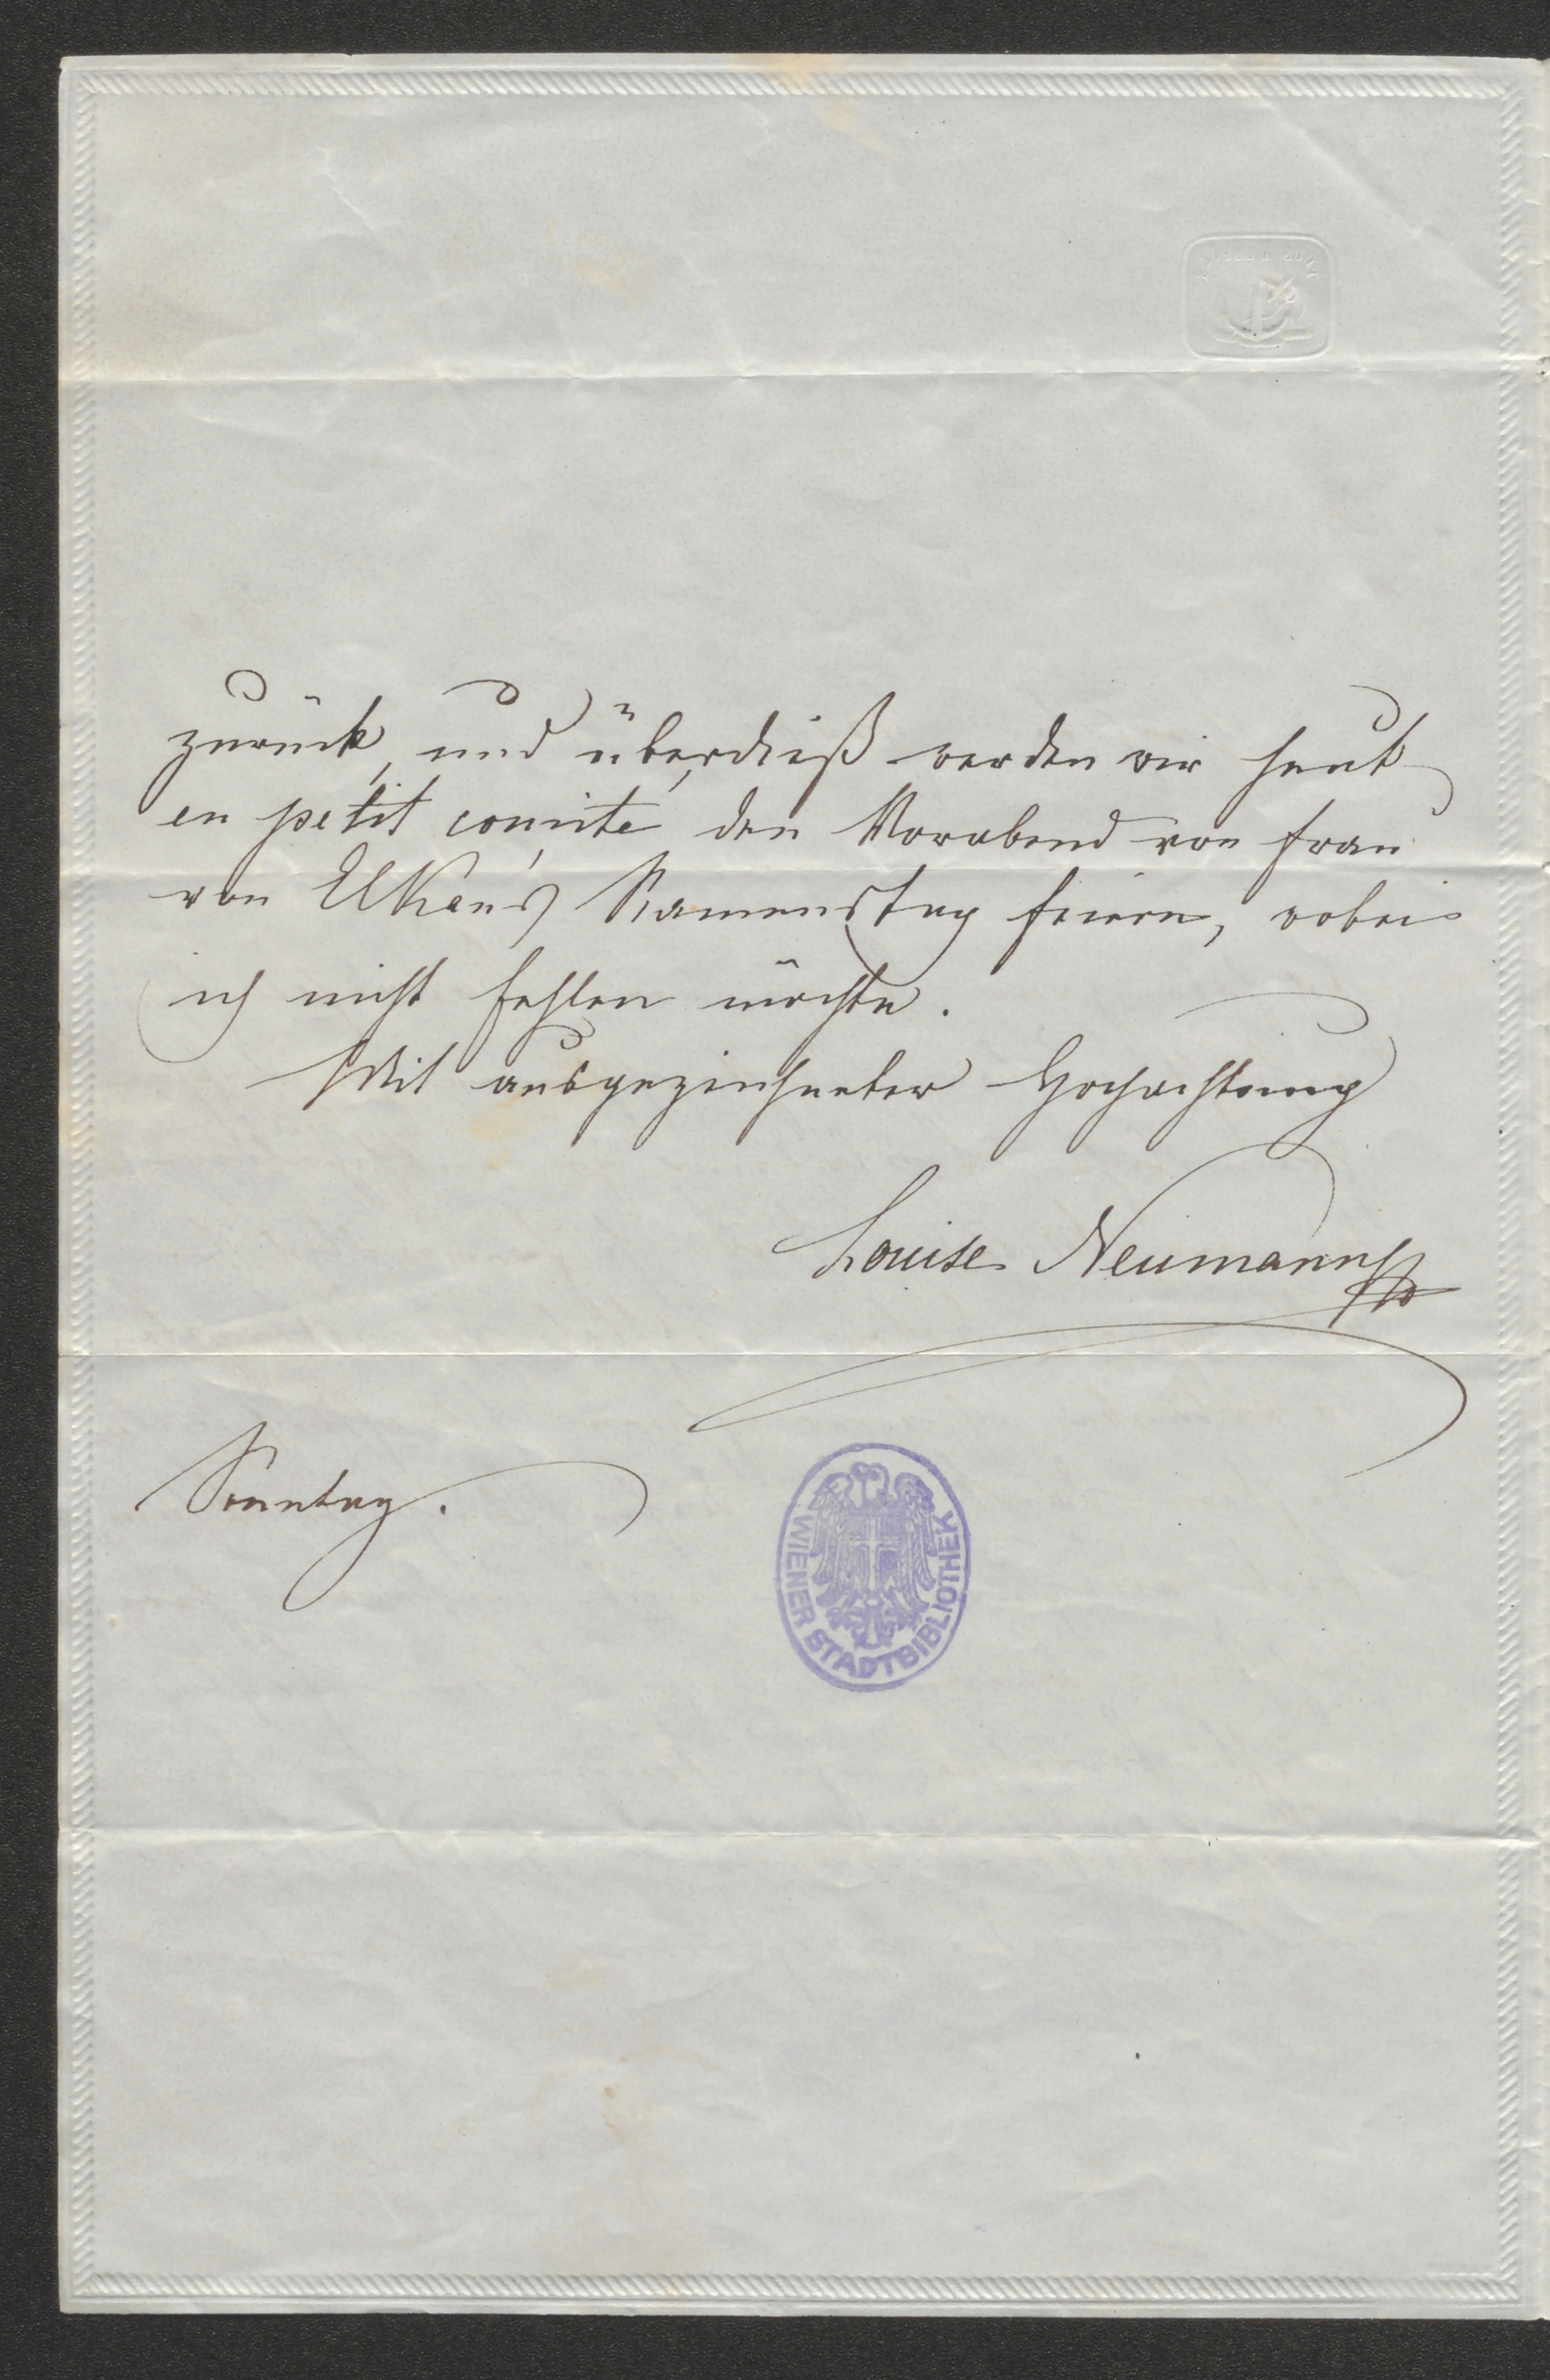 zurück, und überdieß werden wir heut
en petit comité den Vorabend von Frau
von Elkan's Namenstag feiern, wobei
ich nicht fehlen möchte.
Mit ausgezeichneter Hochachtung
Louise Neumann
Sonntag.
WIENER STADTBIBLIOTHEK